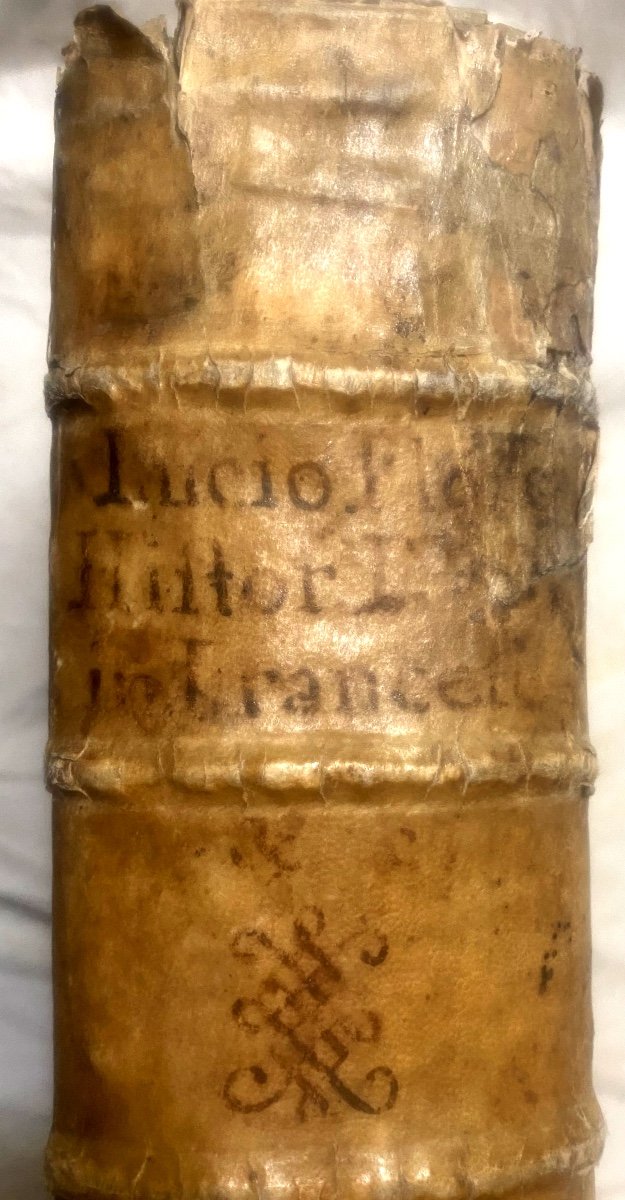 Lucio Floro
Histor
in Francese